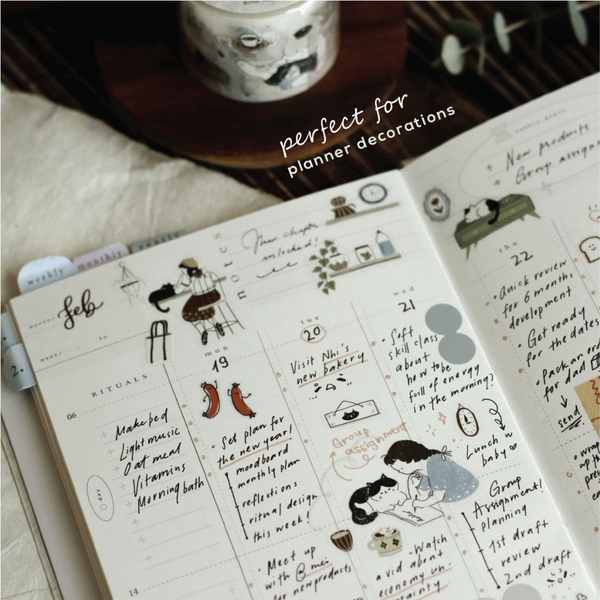 perfect for
planner decorations
weekly
monthly
yearly
feb
notes
New chapter
unlocked!
weekly goals
New products
Group assign
RITUALS
06
Make bed
Light music
Oat meal
Vitamins
Morning bath
14
mon
19
Set plan for
the new year!
moodboard
monthly plan
reflections
ritual design
this week!
Meet up
with @mei
for new products
tue
20
Visit Nhi's
new bakery
Group
assignment
Watch
a vid about
economy un-
certainty
wed
21
Soft
skill class
about
how to be
full of energy
in the morning?
Lunch w
baby
Group
Assignment!
planning
1st draft
review
2nd draft
thu
22
Quick review
for 6 months
development
Get ready
for the dates
Pack an ord
for dad
send
2.